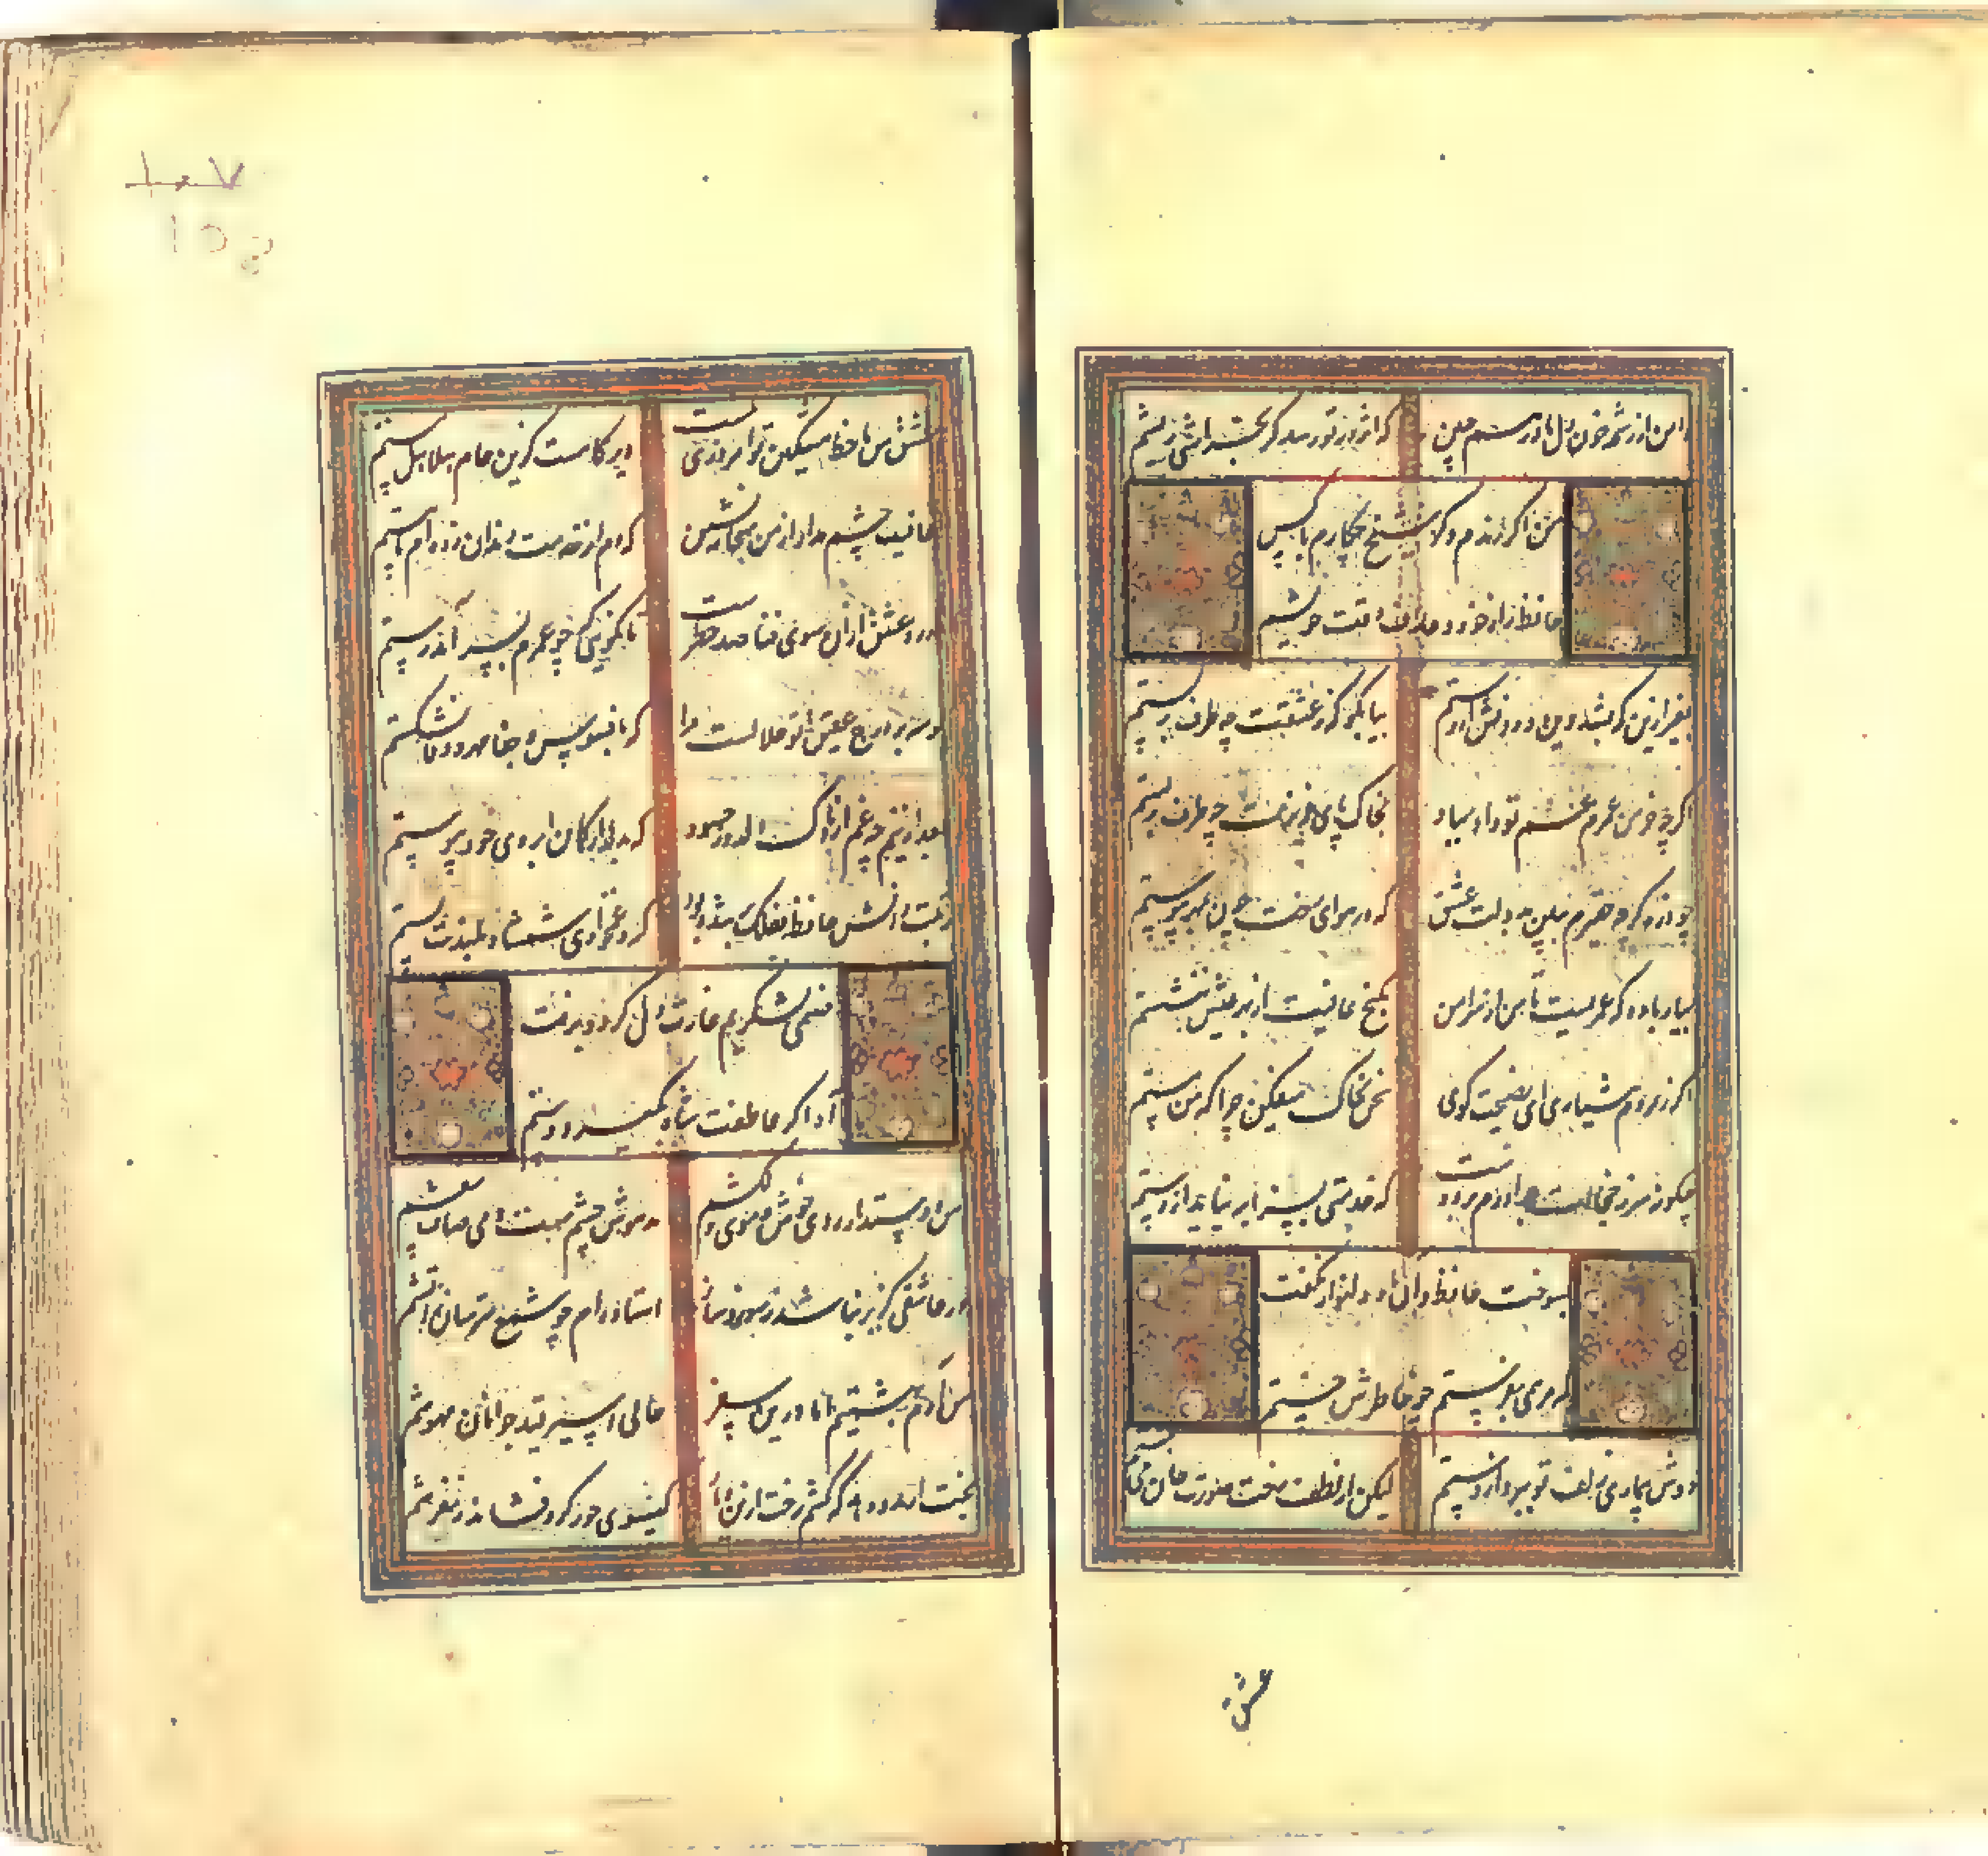 دامن از رشح خون دل ما در هم چین که اثر در تو رسد گر بخراشی ریشم
من اگر رندم و گر شیخ چکارم با کس
حافظ راز خود و عارف وقت خویشم
بغیر ازین که بشد دین و دانش از دستم بیا بگو که ز عشقت چه طرف بربستم
گرچه خرمن عمرم غم تو داد بباد بخاک پای عزیزت چه طرف بربستم
چو ذره گرچه حقیرم ببین بدولت عشق که در هوای رخت چون بمهر پیوستم
بیار باده که عمریست تا من از سر امن بکنج عافیت از بهر عیش ننشستم
اگر ز مردم هشیاری ای نصیحت گوی سخن بخاک میفکن چرا که من مستم
چگونه سر ز خجالت برآورم بر دوست که خدمتی بسزا برنیامد از دستم
بسوخت حافظ و آن یار دلنواز نگفت
که مرهمی بفرستم چو خاطرش خستم
دوش بیماری زلف تو ببرد از دستم لیکن از لطف رخت صورت جان می بستم
عشق
١٠٧
عشق من با خط مشکین تو امروزی نیست دیر گاهست کزین جام هلالی مستم
عافیت چشم مدار از من میخانه نشین که دم از خدمت رندان زده ام تا هستم
در ره عشق از آن سوی فنا صد خطرست تا نگویی که چو عمرم بسر آمد رستم
بوسه بر درج عقیق تو حلالست مرا که بافسوس و جفا مهر وفا نشکستم
بعد ازینم چه غم از ناوک حسود که بدلدار کمان ابروی خود پیوستم
رتبت دانش حافظ بفلک بر شده بود کرد غمخواری شمشاد بلندت پستم
صنمی لشکریم غارت دل کرد و برفت
آه اگر عاطفت شاه نگیرد دستم
من دوستدار روی خوش و موی دلکشم مدهوش چشم مست و می صاف بیغشم
در عاشقی گزیر نباشد ز سوز و ساز استاده ام چو شمع مترسان ز آتشم
من آدم بهشتیم اما درین سفر حالی اسیر قید جوانان مهوشم
بخت ار مدد دهد که کشم رخت ازین دیار گیسوی حور گرد فشاند ز مفرشم